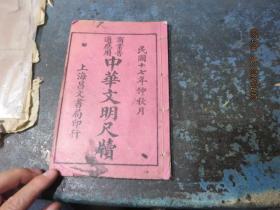 民國十七年仲秋月
商業普通應用
中華文明尺牘
上海昌文書局印行